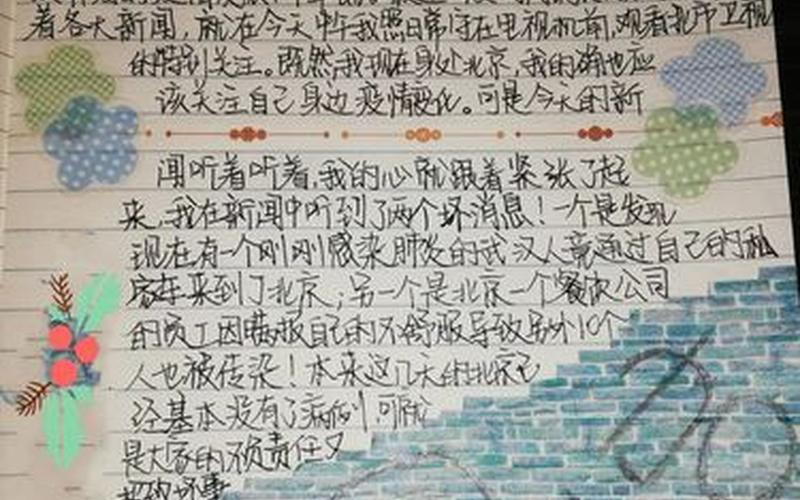 着各大新闻,就在今天中午我照日常守在电视机前,观看北京卫视
的特别关注。既然我现在身处北京,我的确也应
该关注自己身边疫情变化。可是今天的新
闻听着听着,我的心就跟着紧张了起
来,我在新闻中听到了两个坏消息!一个是发现
现在有一个刚刚感染肺炎的武汉人竟通过自己的私
家车来到了北京;另一个是北京一个餐饮公司
的员工因瞒报自己的不舒服导致另外10个
人也被传染!本来这几天的北京已
经基本没有了病例,可
是大家的不负责任又
坏事
20